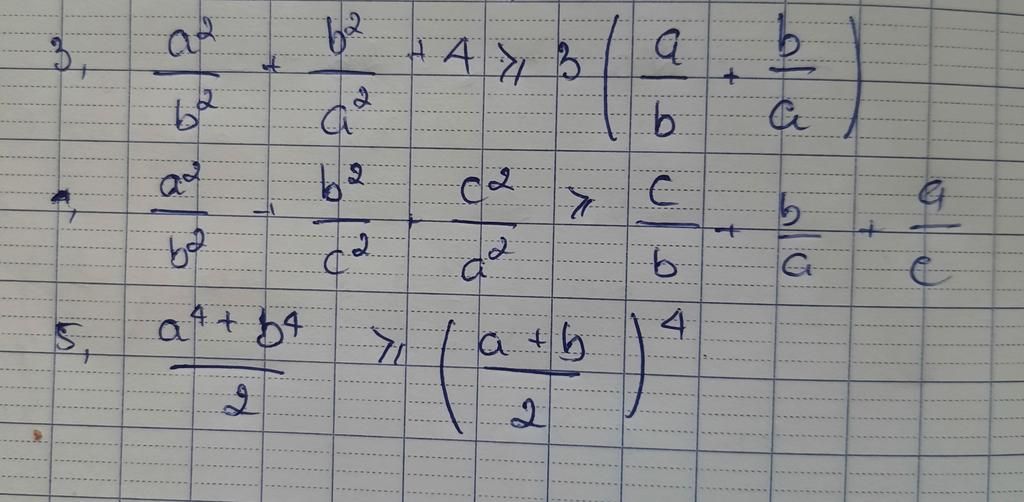 3, a²/b² + b²/a² + 4 ⩾ 3 (a/b + b/a)
4, a²/b² + b²/c² + c²/a² ⩾ c/b + b/a + a/c
5, (a⁴ + b⁴)/2 ⩾ ((a + b)/2)⁴